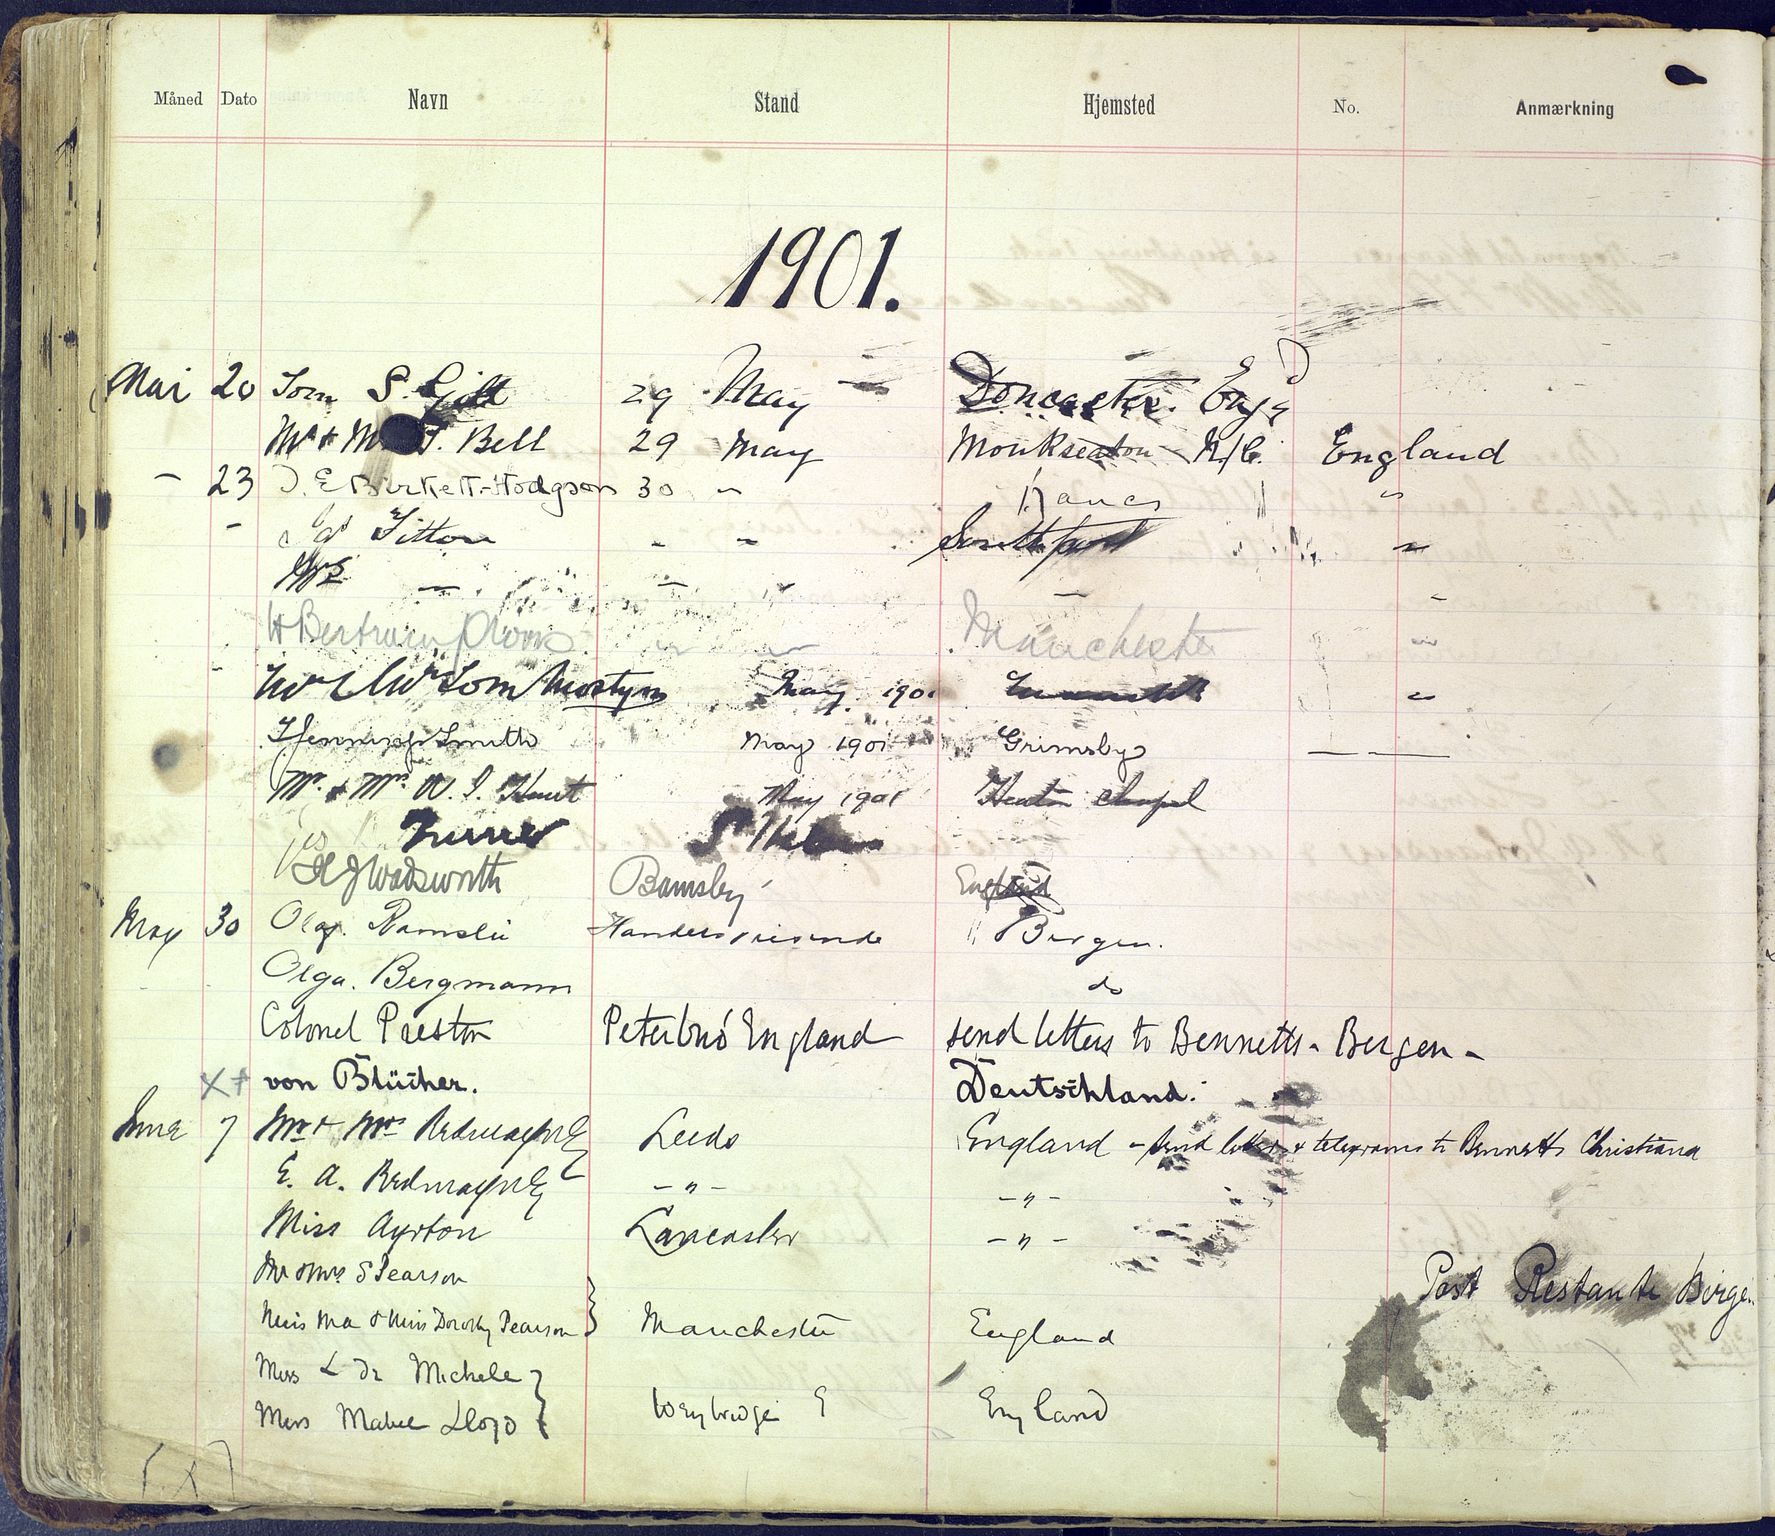 Måned Dato Navn Stand Hjemsted No. Anmærkning
1901.
Mai 20 Tom S. 29 May Doncaster. Eng
Mr & M T. Bell 29 May Monkseaton N/C. England
– 23 E Birkett-Hodgson 30 " "
- Fitton - " Southport "
Mrs — — " — "
H Bertram " " Manchester "
Tom Mostyn May. 1901 "
Smith May 1901 Grimsby — —
Mr. & Mrs. W. Hunt May 1901 Heaton chapel
Turner
Wadsworth England
May 30 Bergen.
Olga. Bergmann do
Colonel Preston Peterbro' England send letters to Bennetts - Bergen -
X+ von Blücher. Deutschland.
June 7 Mr & Mrs Redmayne Leeds England - send letters & telegrams to Bennetts Christiana
E. A. Redmayne -"- -"-
Miss Ayrton Lancaster -"-
Mr & Mrs S Pearson
Post Restante Bergen
Miss & Miss Dorothy Pearson Manchester England
Miss L De Michele
Miss Mabel Lloyd Weybridge England